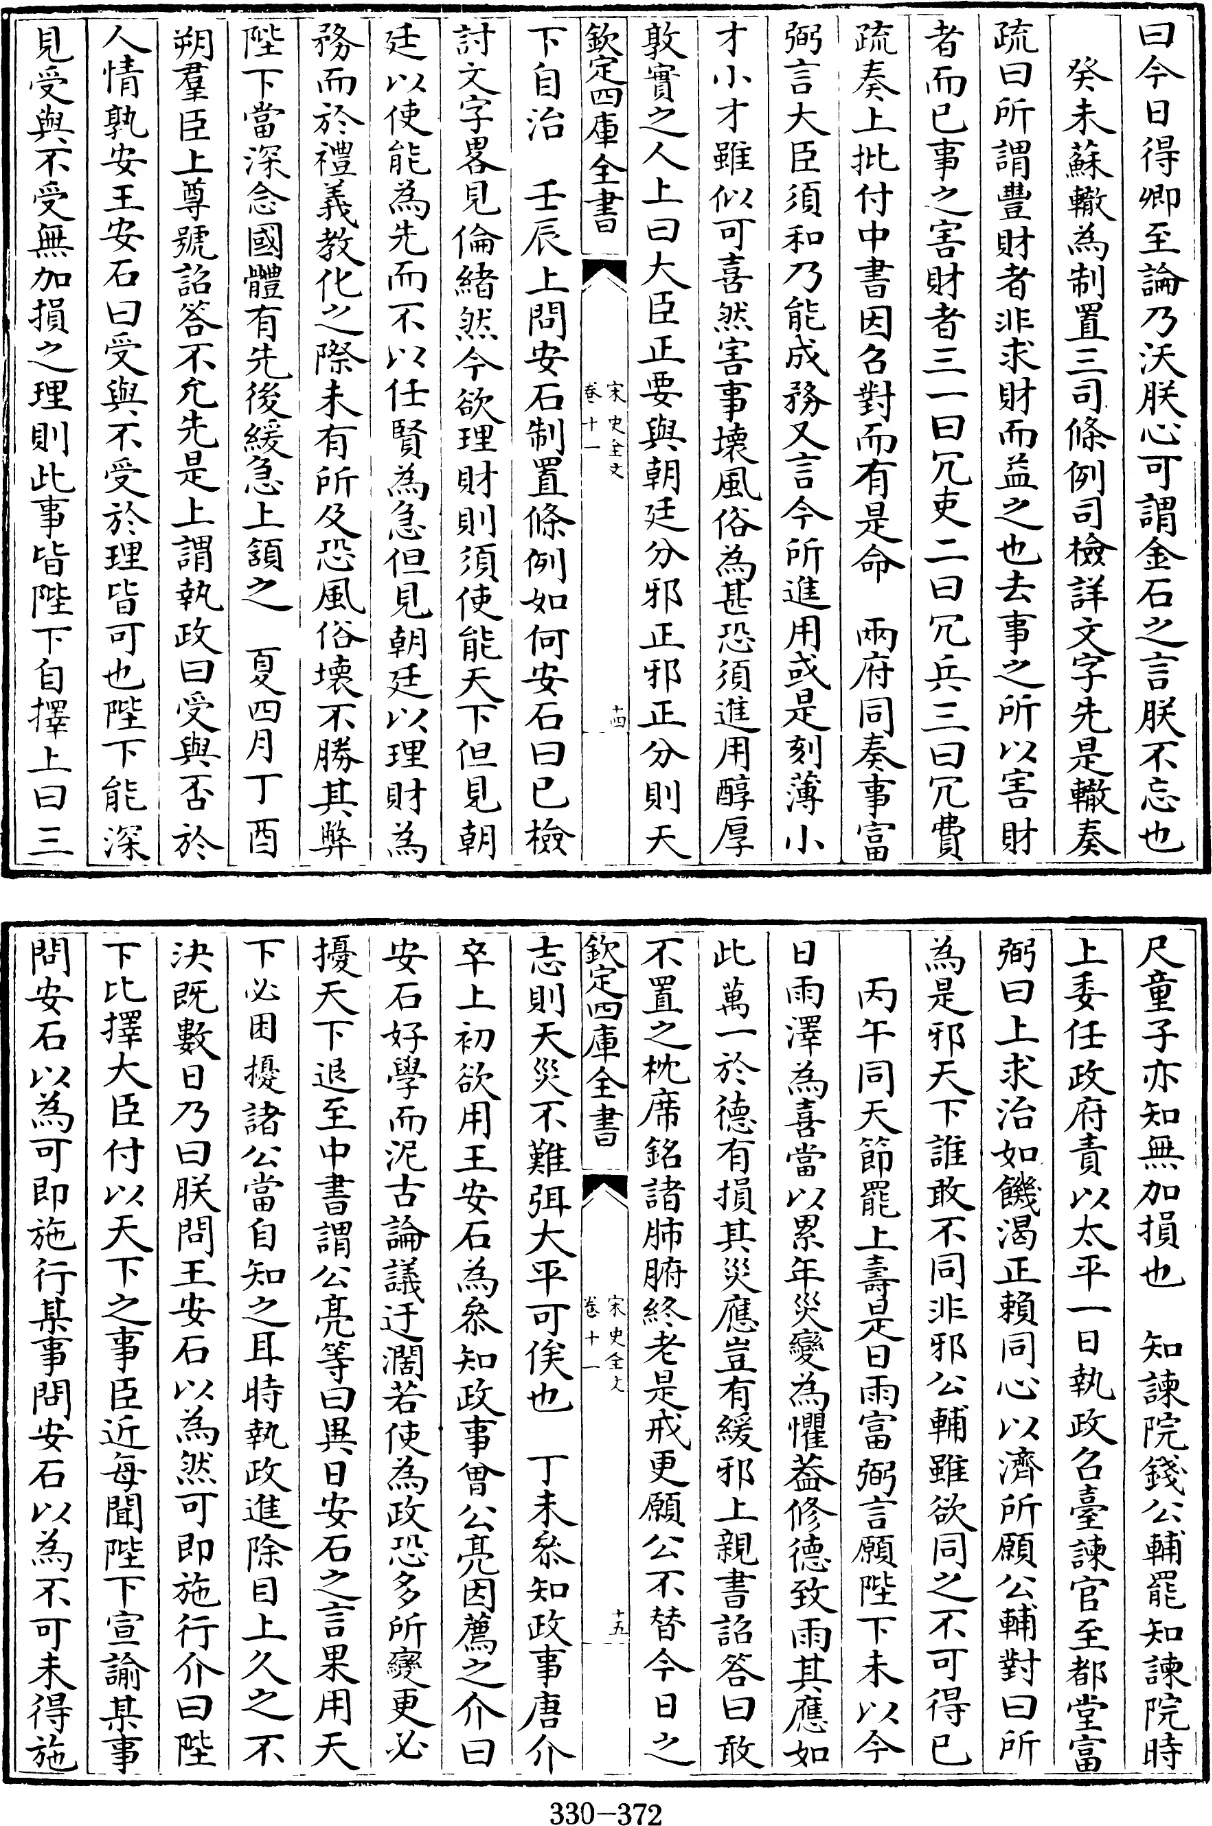 曰今日得卿至論乃沃朕心可謂金石之言朕不忘也
癸未蘇轍為制置三司條例司檢詳文字先是轍奏
疏曰所謂豐財者非求財而益之也去事之所以害財
者而已事之害財者三一曰冗吏二曰冗兵三曰冗費
疏奏上批付中書因召對而有是命　兩府同奏事富
弼言大臣須和乃能成務又言今所進用或是刻薄小
才小才雖似可喜然害事壊風俗為甚恐須進用醇厚
敦實之人上曰大臣正要與朝廷分邪正邪正分則天
欽定四庫全書
宋史全文
卷十一
十四
下自治　壬辰上問安石制置條例如何安石曰已檢
討文字畧見倫緒然今欲理財則須使能天下但見朝
廷以使能為先而不以任賢為急但見朝廷以理財為
務而於禮義教化之際未有所及恐風俗壊不勝其弊
陛下當深念國體有先後緩急上頷之　夏四月丁酉
朔羣臣上尊號詔答不允先是上謂執政曰受與否於
人情孰安王安石曰受與不受於理皆可也陛下能深
見受與不受無加損之理則此事皆陛下自擇上曰三
尺童子亦知無加損也　知諫院錢公輔罷知諫院時
上委任政府責以太平一日執政召臺諫官至都堂富
弼曰上求治如饑渴正賴同心以濟所願公輔對曰所
為是邪天下誰敢不同非邪公輔雖欲同之不可得已
丙午同天節罷上壽是日雨富弼言願陛下未以今
日雨澤為喜當以累年災變為懼葢修德致雨其應如
此萬一於德有損其災應豈有緩邪上親書詔答曰敢
不置之枕席銘諸肺腑終老是戒更願公不替今日之
欽定四庫全書
宋史全文
卷十一
十五
志則天災不難弭大平可俟也　丁未叅知政事唐介
卒上初欲用王安石為叅知政事曾公亮因薦之介曰
安石好學而泥古論議迂濶若使為政恐多所變更必
擾天下退至中書謂公亮等曰異日安石之言果用天
下必困擾諸公當自知之耳時執政進除目上久之不
決既數日乃曰朕問王安石以為然可即施行介曰陛
下比擇大臣付以天下之事臣近每聞陛下宣諭某事
問安石以為可即施行某事問安石以為不可未得施
330-372